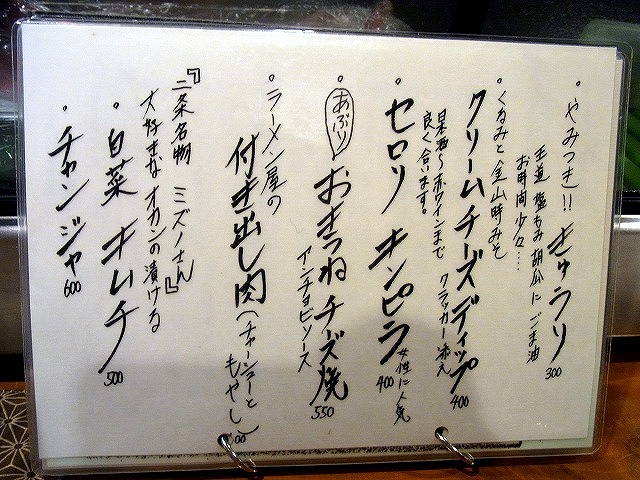 。やみつき!! きゅうり 300
王道 塩もみ胡瓜に ごま油
お時間少々…
。くるみと金山時みそ
クリームチーズディップ 400
日本酒〜赤ワインまで クラッカー添え
良く合います。
。セロリ キンピラ 400
女性に人気
。あぶり おきつねチーズ焼 550
アンチョビソース
。ラーメン屋の
付き出し肉(チャーシューと
もやし)
『二条名物 ミズノさん』
大好きなオカンの漬ける
。白菜 キムチ 500
。チャンジャ 600